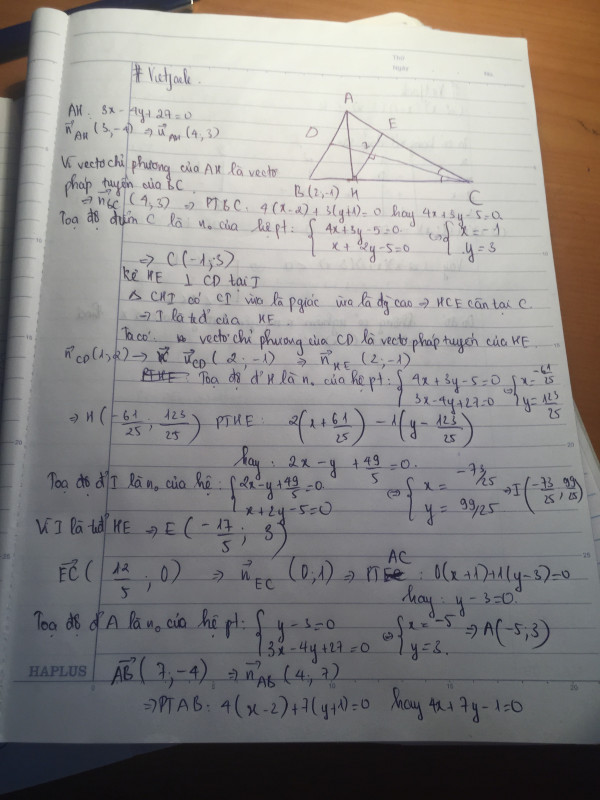 # Vietjack.
Thứ
Ngày
No.
AH: 3x - 4y + 27 = 0
n⃗AH (3; -4) ⇒ u⃗AH (4, 3)
A
D
E
I
B(2,-1) H
C
Vì vectơ chỉ phương của AH là vectơ
pháp tuyến của BC.
⇒ n⃗BC (4, 3) ⇒ PTBC: 4(x-2) + 3(y+1) = 0 hay 4x + 3y - 5 = 0.
Toạ độ điểm C là no của hệ pt: { 4x + 3y - 5 = 0 ; x + 2y - 5 = 0 ⇔ { x = -1 ; y = 3
⇒ C(-1; 3)
Kẻ HE ⊥ CD tại I
Δ CHI có CI vừa là pgiác vừa là đg cao ⇒ HCE cân tại C.
⇒ I là tđ của HE
Ta có: vectơ chỉ phương của CD là vectơ pháp tuyến của HE.
n⃗CD (1, 2) → u⃗CD (2; -1) ⇒ n⃗HE (2; -1)
PTHE: Toạ độ đ' H là no của hệ pt: { 4x + 3y - 5 = 0 ; 3x - 4y + 27 = 0 ⇔ { x = -61/25 ; y = 123/25
⇒ H(-61/25 ; 123/25) PTHE: 2(x + 61/25) - 1(y - 123/25)
hay: 2x - y + 49/5 = 0.
Toạ độ đ' I là no của hệ: { 2x - y + 49/5 = 0 ; x + 2y - 5 = 0 ⇔ { x = -73/25 ; y = 99/25 ⇒ I(-73/25 ; 99/25)
Vì I là tđ HE ⇒ E(-17/5 ; 3)
E⃗C (12/5 ; 0) ⇒ n⃗EC (0; 1) ⇒ PT AC : 0(x+1) + 1(y-3) = 0
hay: y - 3 = 0.
Toạ độ đ' A là no của hệ pt: { y - 3 = 0 ; 3x - 4y + 27 = 0 ⇔ { x = -5 ; y = 3. ⇒ A(-5; 3)
HAPLUS
A⃗B (7; -4) ⇒ n⃗AB (4; 7)
⇒ PTAB: 4(x-2) + 7(y+1) = 0 hay 4x + 7y - 1 = 0